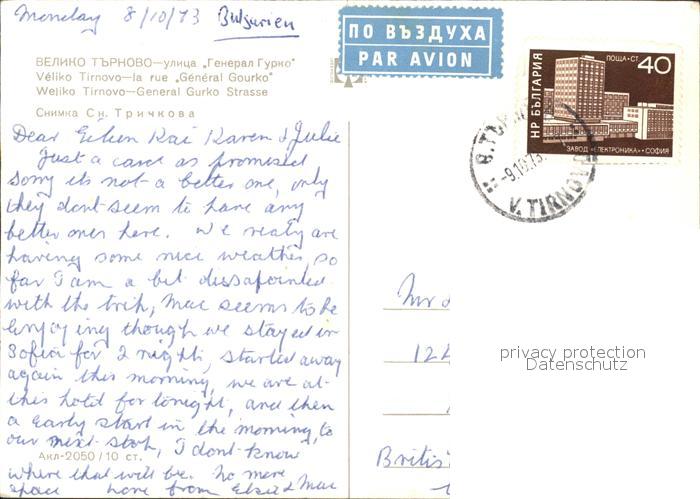 Monday 8/10/73 Bulgarien
ПО ВЪЗДУХА
PAR AVION
ПОЩА • СТ. 40
НР БЪЛГАРИЯ
ЗАВОД „ЕЛЕКТРОНИКА“ - СОФИЯ
-9.10.73.
V. TIRNOVO
ВЕЛИКО ТЪРНОВО—улица „Генерал Гурко“
Véliko Tirnovo—la rue „Général Gourko“
Weliko Tirnovo—General Gurko Strasse
Снимка Сн. Тричкова
Dear Eileen Kai Karen & Julie
Just a card as promised
sorry its not a better one, only
they dont seem to have any
better ones here. We realy are
having some nice weather, so
far I am a bit dissapointed
with the trip, Mac seems to be
enjoying though we stayed in
Sofia for 2 nights, started away
again this morning, we are at
this hotel for tonight, and then
a early start in the morning, to
our next stop, I dont know
Акл-2050/10 ст.
where that will be. No more
space love from Elsie & Mac
Mr
12
Britis
privacy protection
Datenschutz